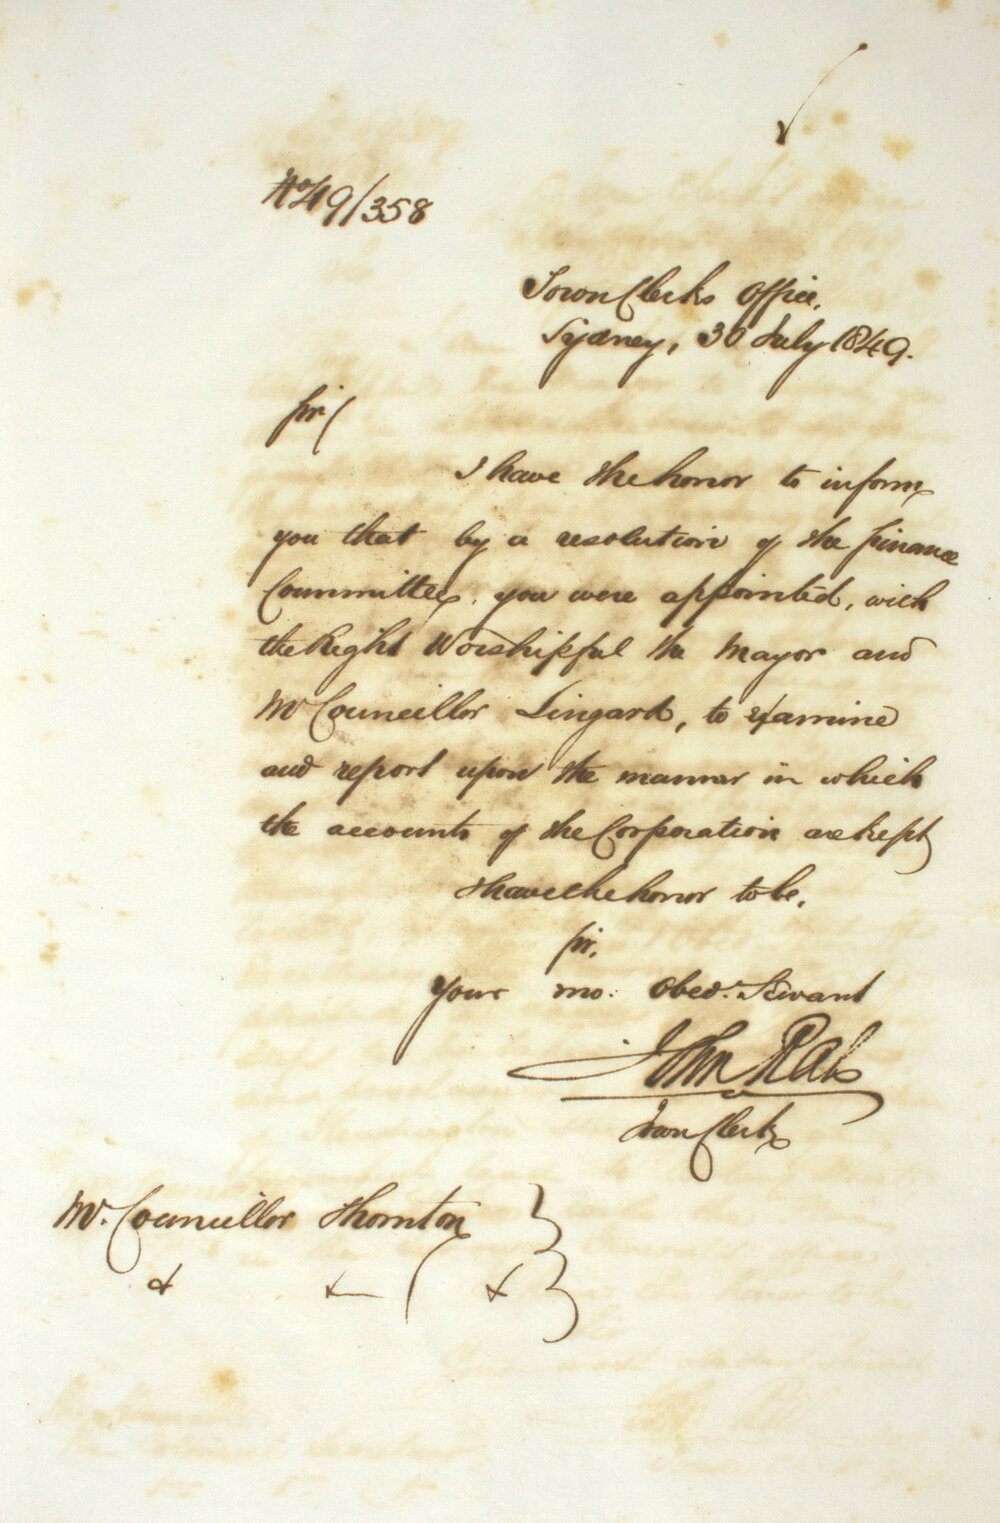 No 49/358
Town Clerks Office,
Sydney, 30 July 1849.
Sir
I have the honor to inform
you that by a resolution of the Finance
Committee, you were appointed, with
the Right Worshipful the Mayor and
Mr Councillor Lingard, to examine
and report upon the manner in which
the accounts of the Corporation are kept
I have the honor to be,
Sir,
Your mo: Obedt. Servant
John Rae
Town Clerk
Mr. Councillor Thornton
&